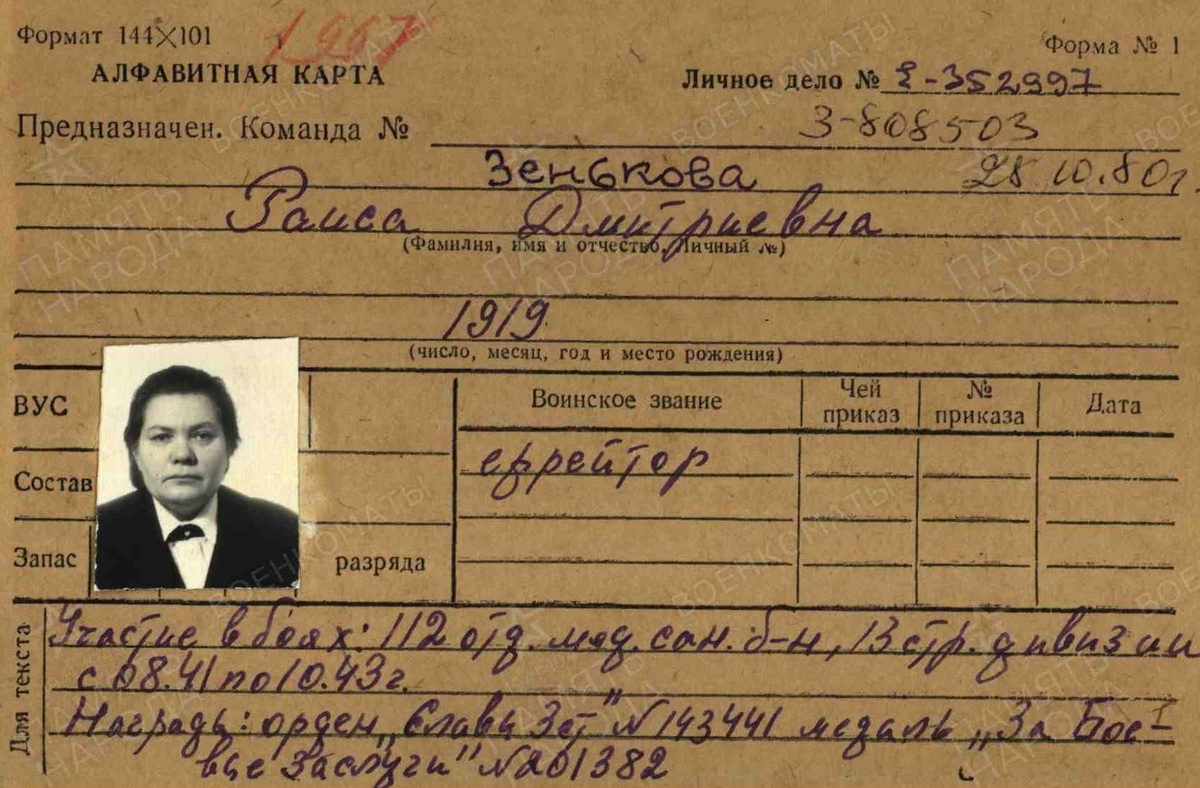 Формат 144×101
1967
Форма № 1
АЛФАВИТНАЯ КАРТА
Личное дело № Е-352997
Предназначен. Команда №
З-808503
Зенькова
28.10.80г
Раиса Дмитриевна
(Фамилия, имя и отчество, личный №)
1919
(число, месяц, год и место рождения)
ВУС
Воинское звание
Чей приказ
№ приказа
Дата
Состав
ефрейтор
Запас
разряда
Для текста
Участие в боях: 112 отд. мед. сан. б-н, 13 стр. дивизии
с 08.41 по 10.43г.
Награды: орден „Славы 3 ст" № 143441 медаль „За Бое-
вые Заслуги" № 201382
ПАМЯТЬ НАРОДА
ВОЕНКОМАТЫ